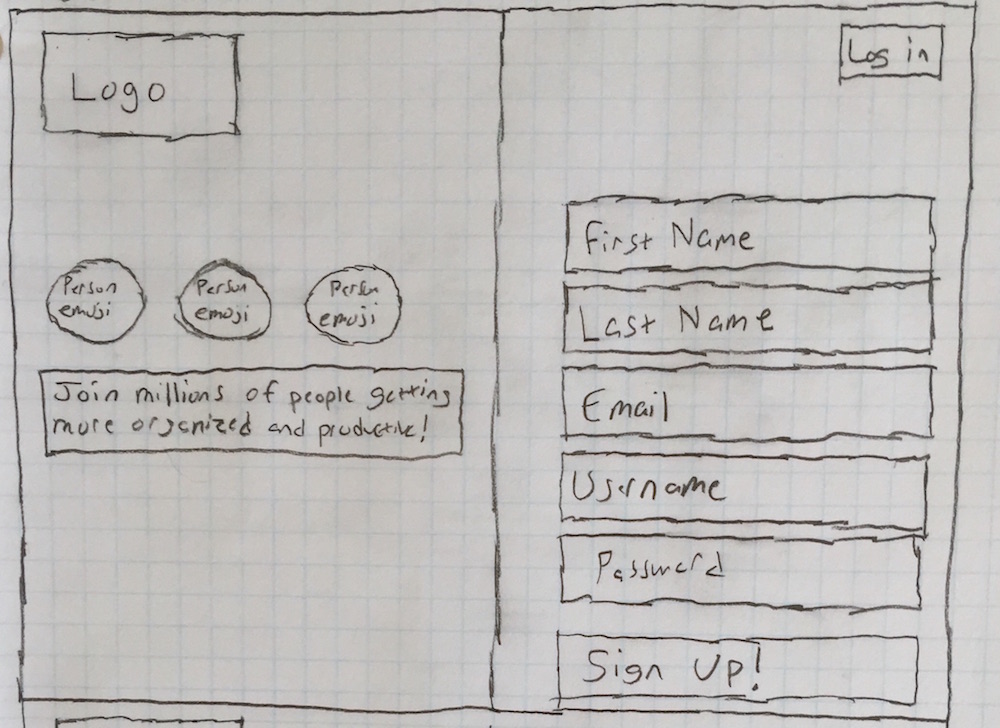 Logo
Person
emoji
Person
emoji
Person
emoji
Join millions of people getting
more organized and productive!
Log in
First Name
Last Name
Email
Username
Password
Sign Up!